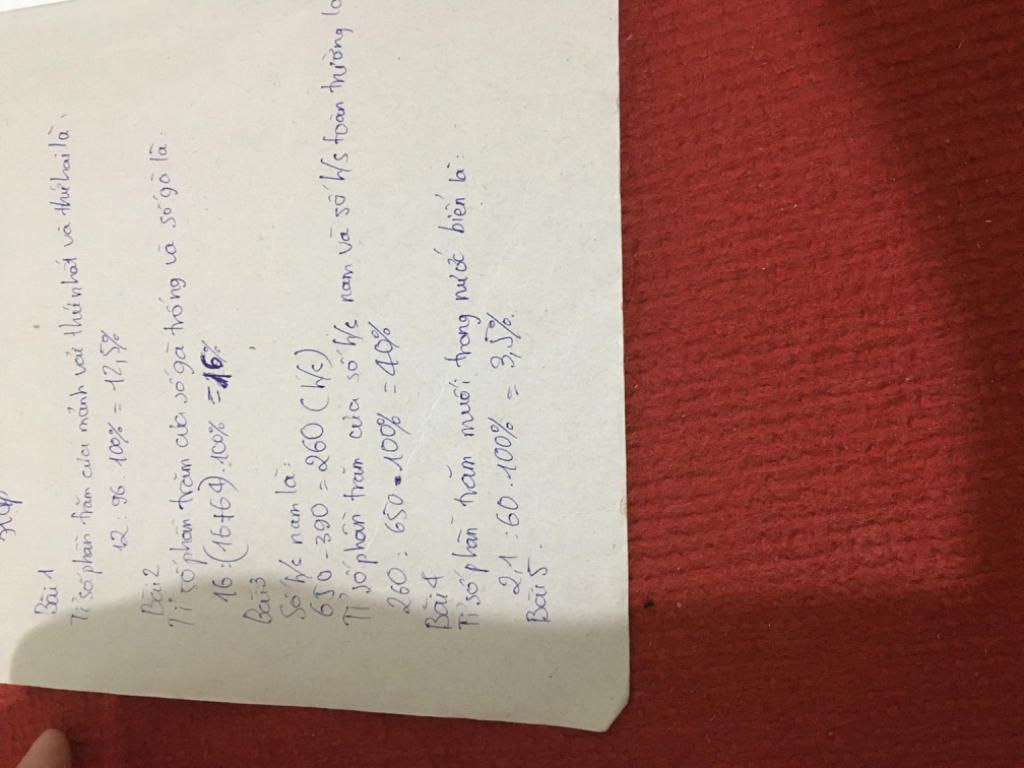 Bài 1
Tỉ số phần trăm của mảnh vải thứ nhất và thứ hai là:
12 : 96 . 100% = 12,5%
Bài 2
Tỉ số phần trăm của số gà trống và số gà là:
16 : (16+64) . 100% = 16%
Bài 3
Số h/s nam là:
650 - 390 = 260 (h/s)
Tỉ số phần trăm của số h/s nam và số h/s toàn trường là
260 : 650 . 100% = 40%
Bài 4
Tỉ số phần trăm muối trong nước biển là:
21 : 60 . 100% = 3,5%.
Bài 5.